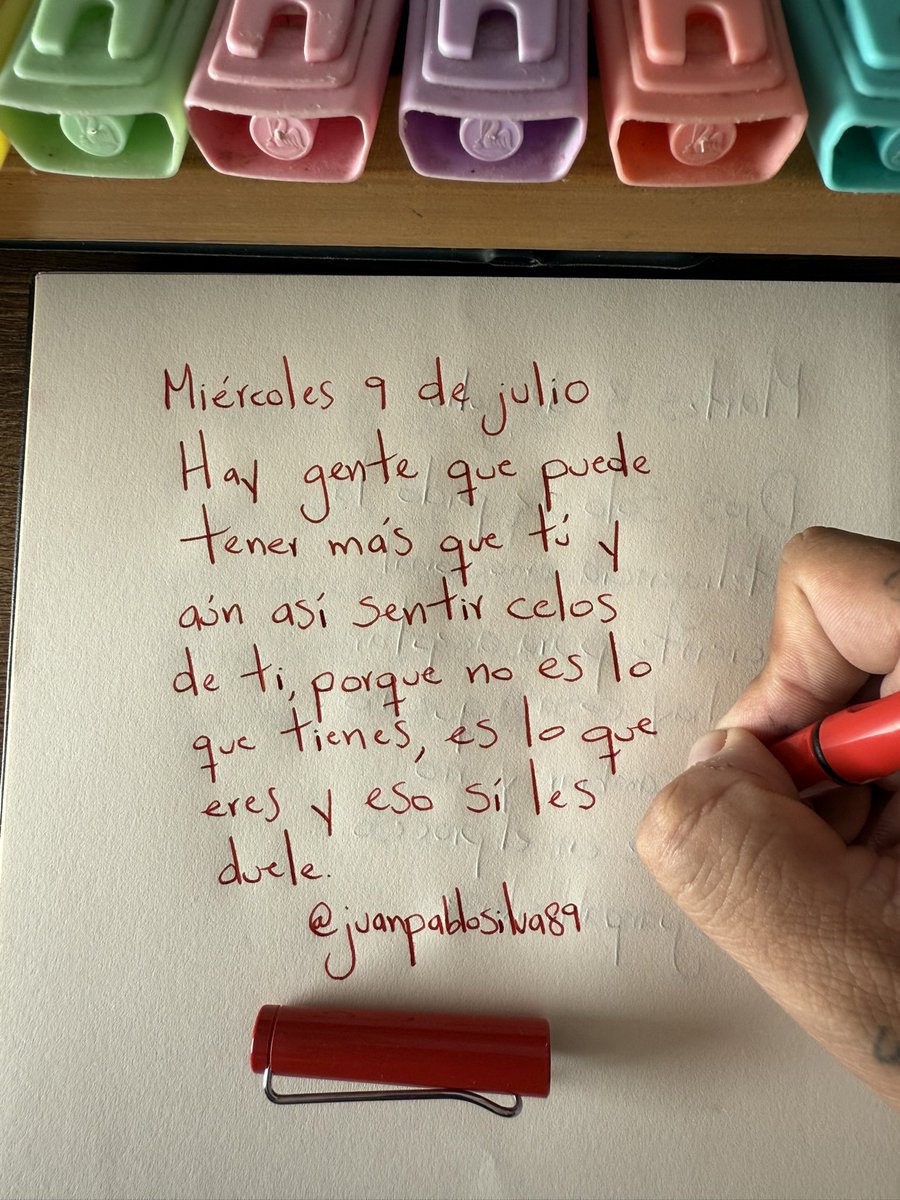 Miércoles 9 de julio
Hay gente que puede
tener más que tú y
aún así sentir celos
de ti, porque no es lo
que tienes, es lo que
eres y eso sí les
duele.
@juanpablosilva89